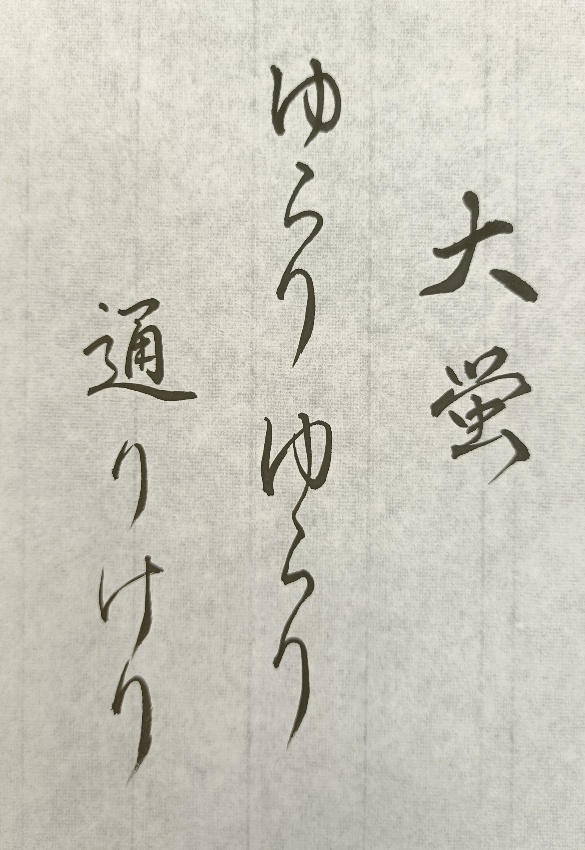 大蛍
ゆらりゆらり
通りけり